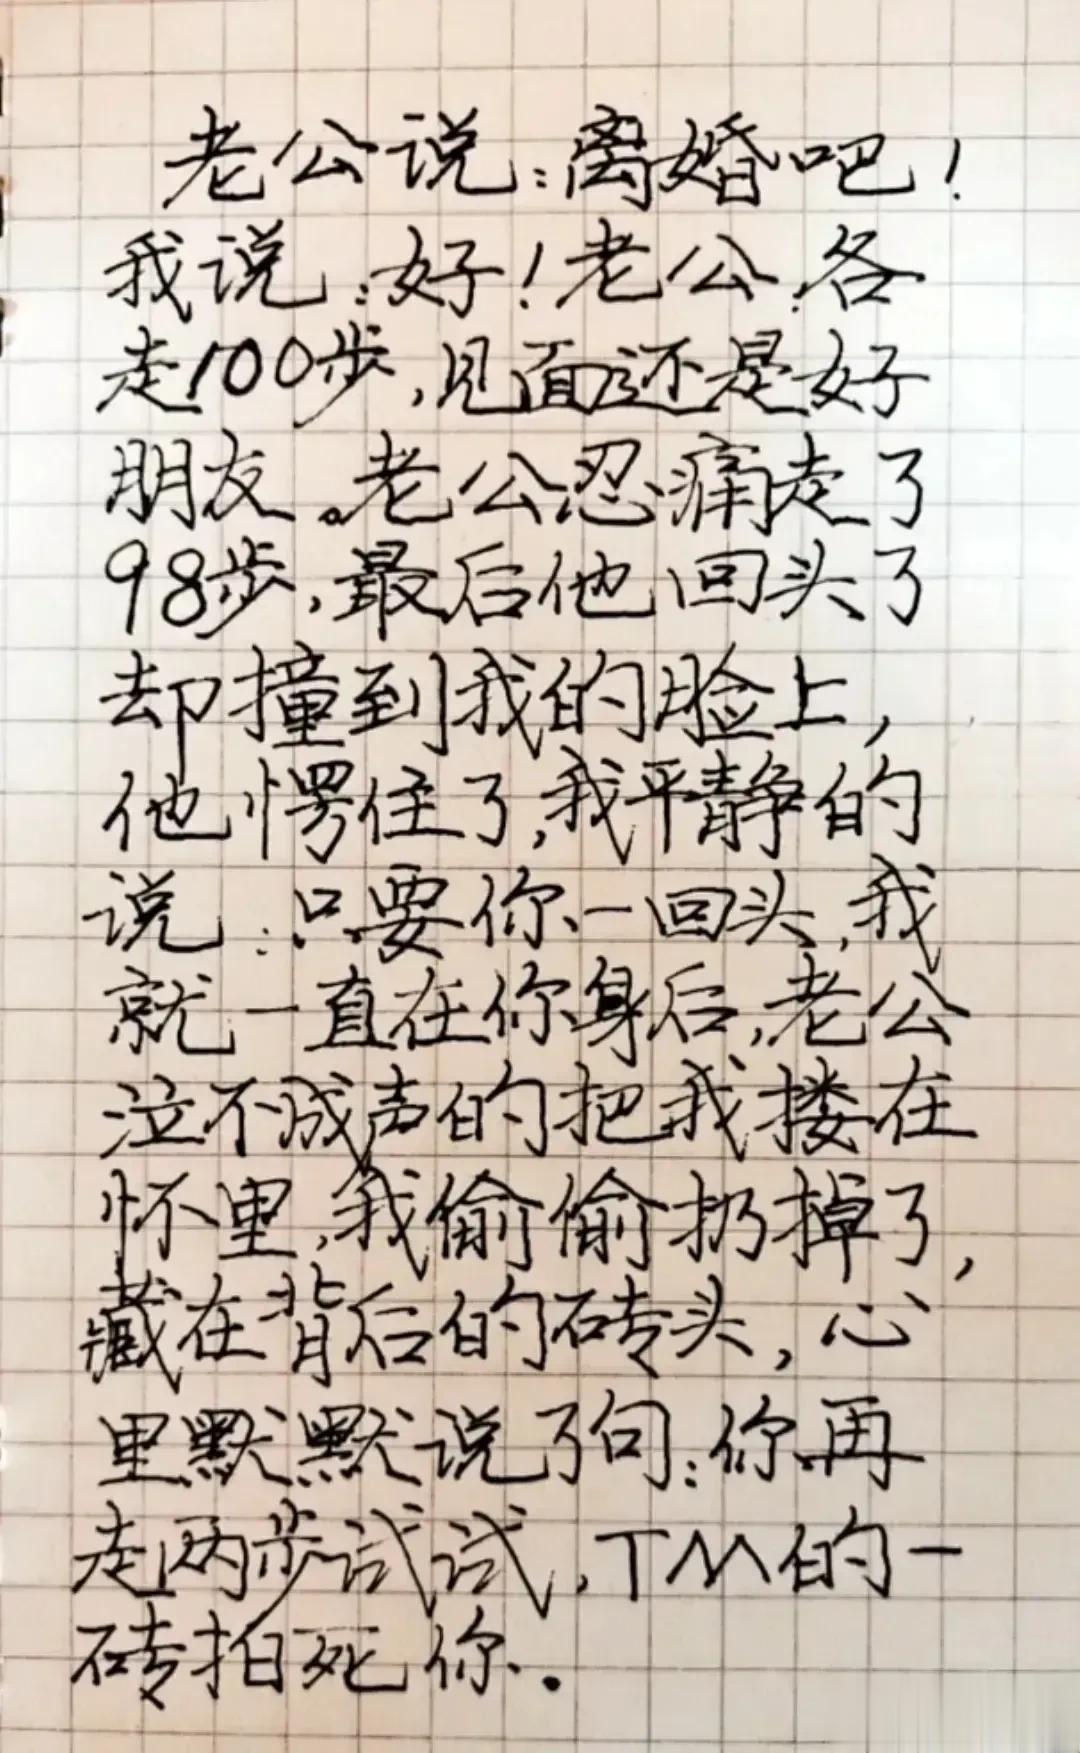 老公说:离婚吧!
我说:好!老公,各
走100步,见面还是好
朋友。老公忍痛走了
98步,最后他回头了
却撞到我的脸上,
他愣住了,我平静的
说:只要你一回头,我
就一直在你身后,老公
泣不成声的把我搂在
怀里,我偷偷扔掉了,
藏在背后的砖头,心
里默默说了句:你再
走两步试试,TM的一
砖拍死你.